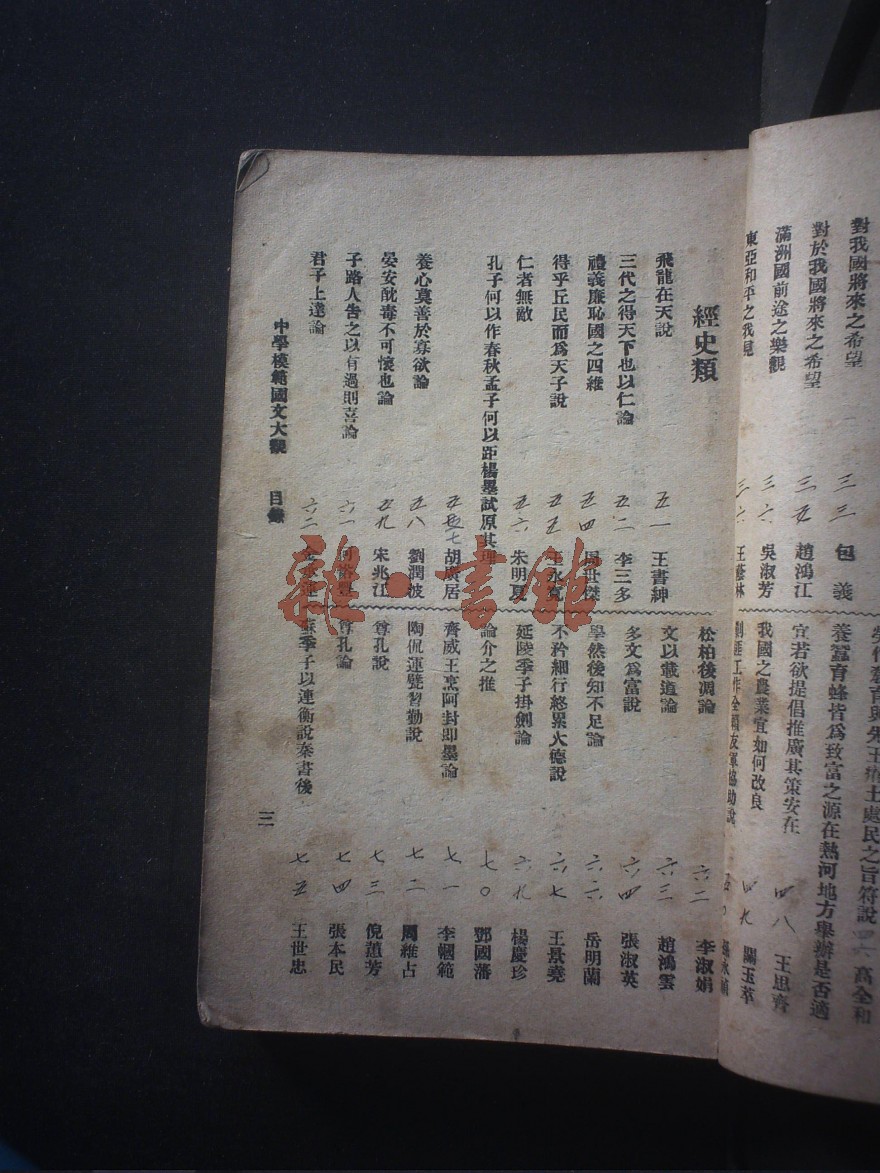 對我國將來之希望 三三 包義
對於我國將來之希望 三五 趙鴻江
滿洲國前途之樂觀 三六 吳淑芳
東亞和平之我見 三六 王藝林
養蠶育蜂皆為致富之源在熱河地方舉辦是否適
宜若欲提倡推廣其策安在 四八 王思齊
我國之農業宜如何改良 四九 關玉萃
經史類
飛龍在天說 五一 王書紳
三代之得天下也以仁論 五二 李三多
禮義廉恥國之四維 五四 周世傑
得乎丘民而為天子說 五五 王永寬
仁者無敵 五六 朱明夏
孔子何以作春秋孟子何以距楊墨試原其理
五七 胡廣居
養心莫善於寡欲論 五八 劉潤波
晏安酖毒不可懷也論 五九 宋兆江
子路人告之以有過則喜論 六一
君子上達論 六二
松柏後凋論 六二 李淑娟
文以載道論 六三 趙鴻雲
多文為富說 六四 張淑英
學然後知不足論 六六 岳明蘭
不矜細行終累大德說 六七 王景堯
延陵季子掛劍論 六九 楊慶珍
論介之推 七〇 鄧國藩
齊威王烹阿封即墨論 七一 李幗範
陶侃運甓習勤說 七二 周維占
尊孔說 七三 倪蕙芳
尊孔論 七四 張本民
蘇季子以連衡說秦書後 七五 王世忠
中學模範國文大觀 目錄 三
雜·書館